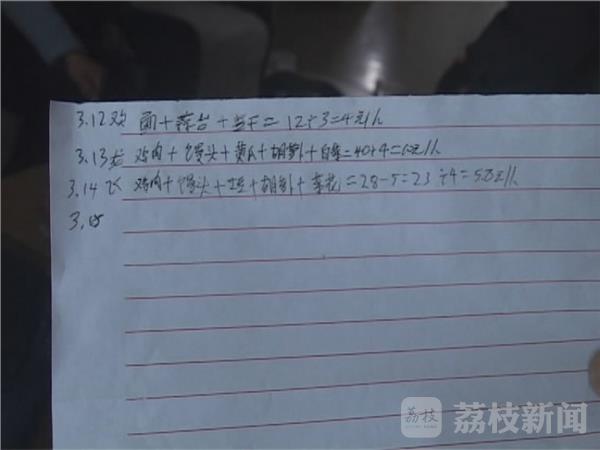 3.12 面+蒜苔+豆干=12÷3=4元/人
3.13 龙 鸡肉+馒头+黄瓜+胡萝卜+白菜=40÷4=10元/人
3.14 飞 鸡肉+馒头+土豆+胡萝卜+菜花=28-5=23÷4=5.8元/人
3.15
荔枝
荔枝新闻